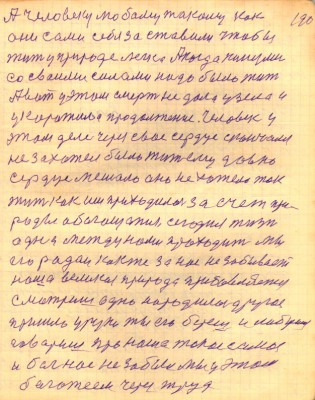 190
А человеку любому такому как
они сами себя заставили чтобы
жить у природе легко А когда кинулись
со своими силами надо было жит
А вот у этом смерт не дала узела и
укоротила продолжение. Человек у
этом деле через свое сердце скончался
не захотел было жит ему давно
сердце мешало оно не хотело так
жит как им приходилос за счет при
роды обогощатся, сегодня жизн
одна между нами проходит мы
его рады также за нас не забывает
наша великая природа
смотриш одно народилос другое
пришло у руки ты его береш и
говориш про наша такое самое
и бог нас не забыл мы у этом
богатеем через труд